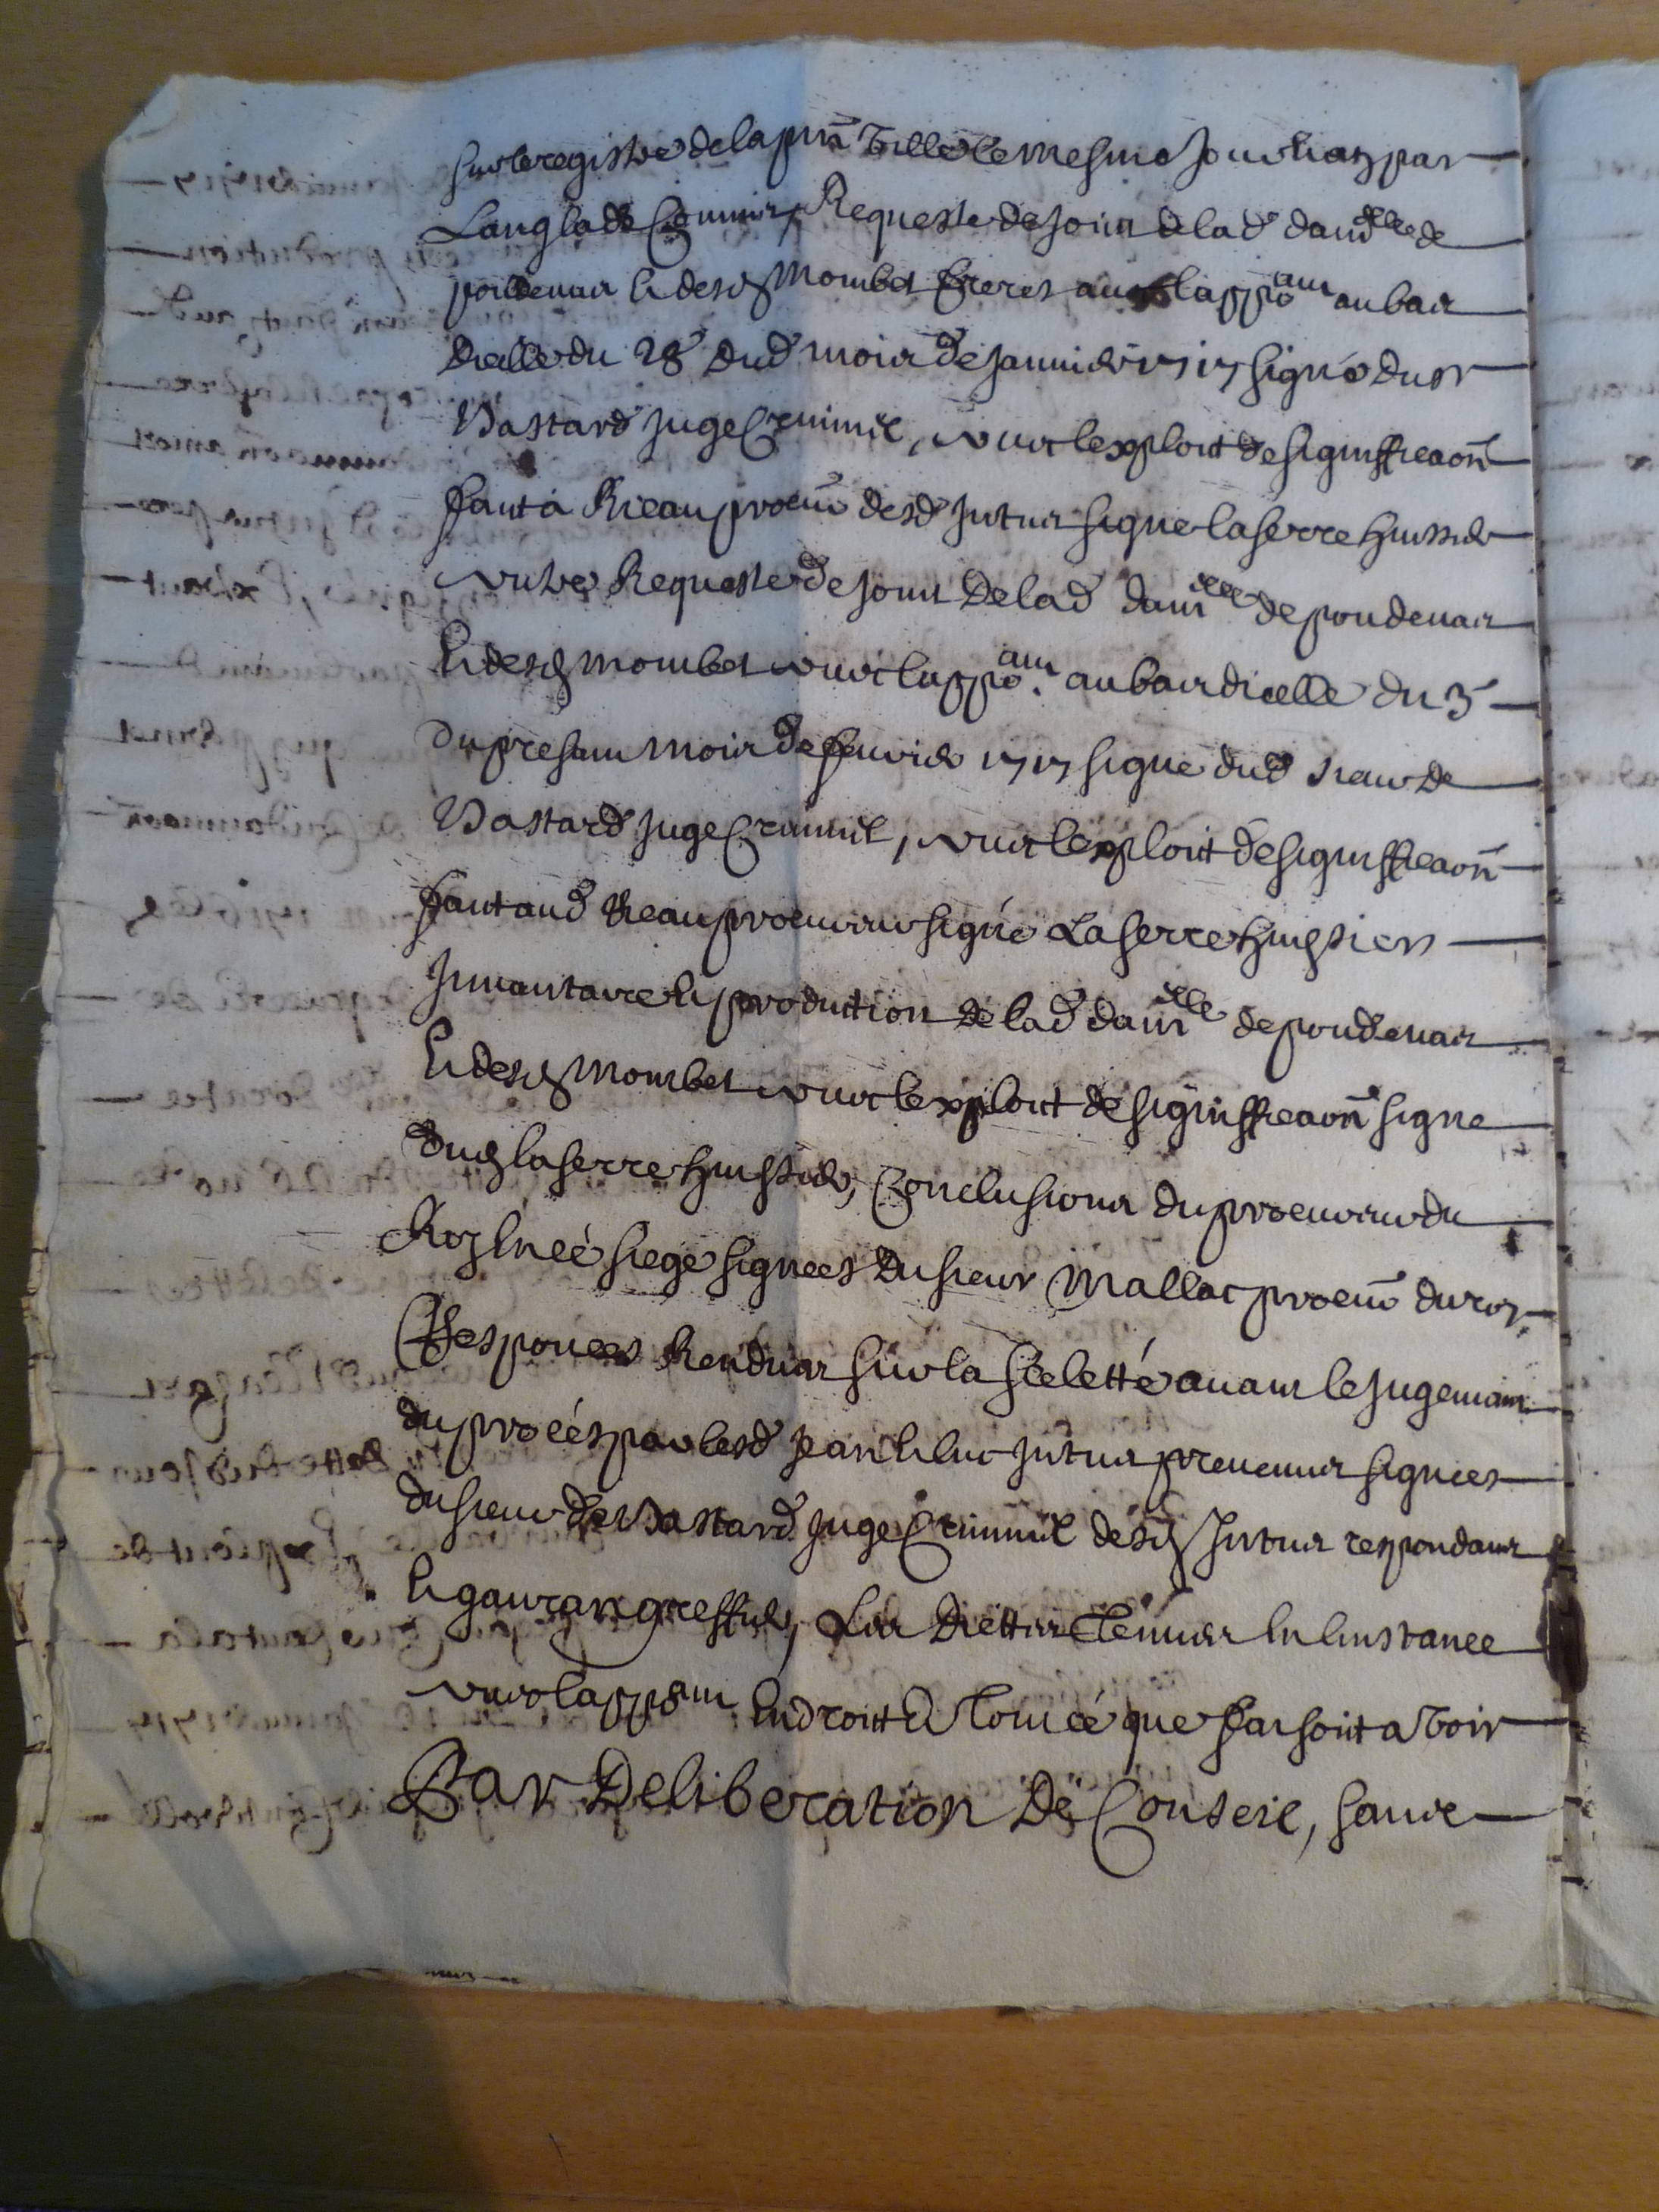 sur le registre de la pnt Ville le mesme jour par
Langlade Commis, Requeste de joint de lad damlle de
poudenas et desd Mombet freres avec lappoant au bas
dicelle du 28 dud mois de janvier 1717 signé du sr
Bastard juge Criminel, avec lexploit de signifficaon
fait a Rieau procur desd signé Laserre huissier
autre Requeste de joint de lad damlle de poudenas
et desd mombet avec lappoant au bas dicelle du 3
du presant mois de fevrier 1717 signé dud sieur de
Bastard juge Criminel, avec lexploit de signifficaon
fait aud Rieau procureur signé Laserre huissier
Inventaire et production de lad damlle de poudenas
et desd mombet avec lexploit de signifficaon signé
dud laserre huissier, Conclusions du procureur du
Roy en ce siege signees du sieur Mallac procur du roy,
Responces Rendues sur la scelette avant le jugemant
du procés par lesd jean et luc prevenus signees
du sieur de Bastard juge Criminel desd respondans
et gauran greffier, Les Diettes Tenues en linstance
avec lappoant en droit et Tout ce que faisoit a Voir
Par Deliberation De Conseil, sans